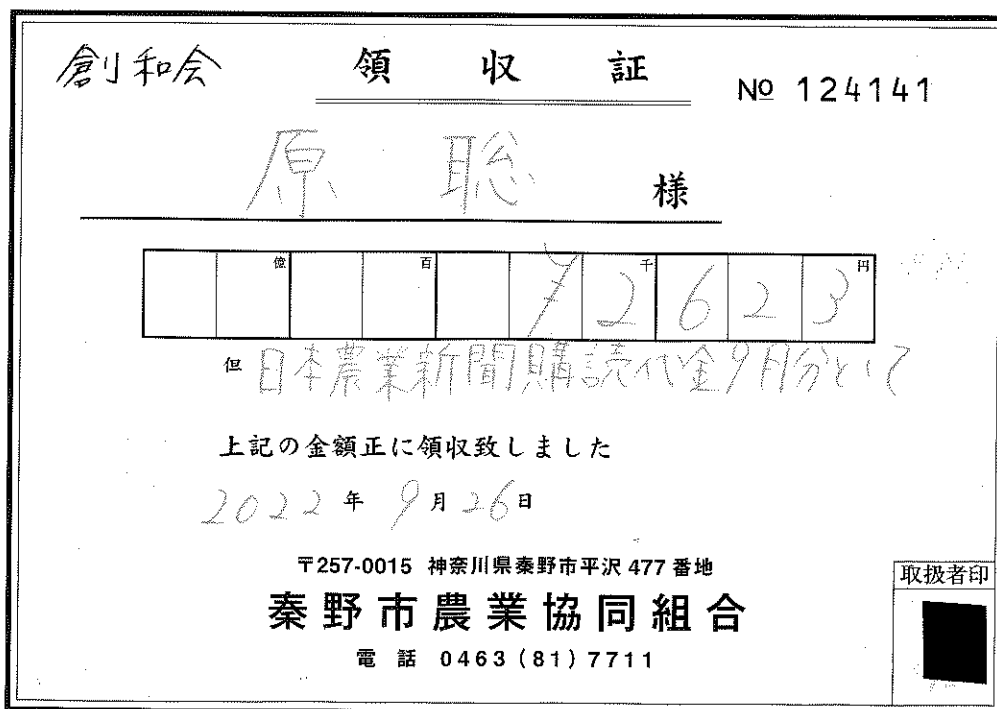 創和会 領収証 № 124141
原 聡 様
億 百 千 円
¥2623
但 日本農業新聞購読代金9月分として
上記の金額正に領収致しました
2022年 9月26日
〒257-0015 神奈川県秦野市平沢 477 番地
秦野市農業協同組合
電話 0463(81)7711
取扱者印